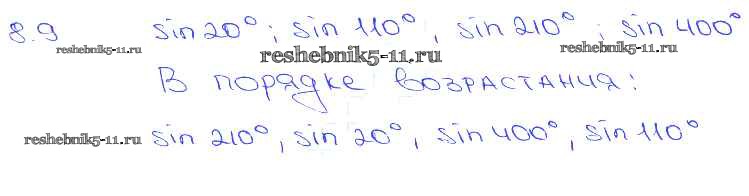 8.9 sin 20°; sin 110°, sin 210°; sin 400°
reshebnik5-11.ru reshebnik5-11.ru reshebnik5-11.ru
В порядке возрастания:
reshebnik5-11.ru sin 210°, sin 20°, sin 400°, sin 110°